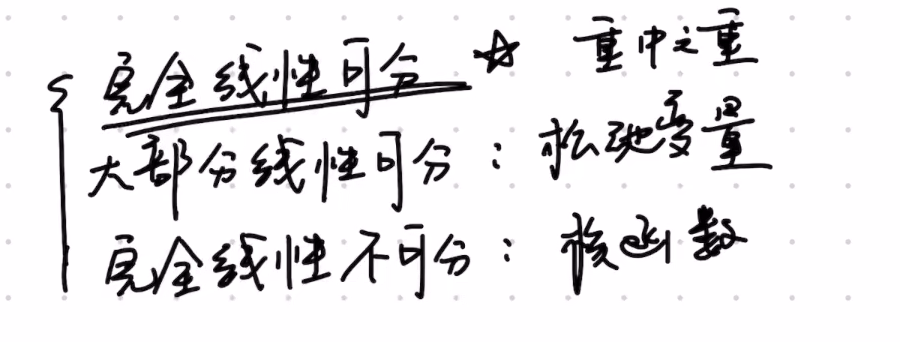 完全线性可分 ☆ 重中之重
大部分线性可分：松弛变量
完全线性不可分：核函数